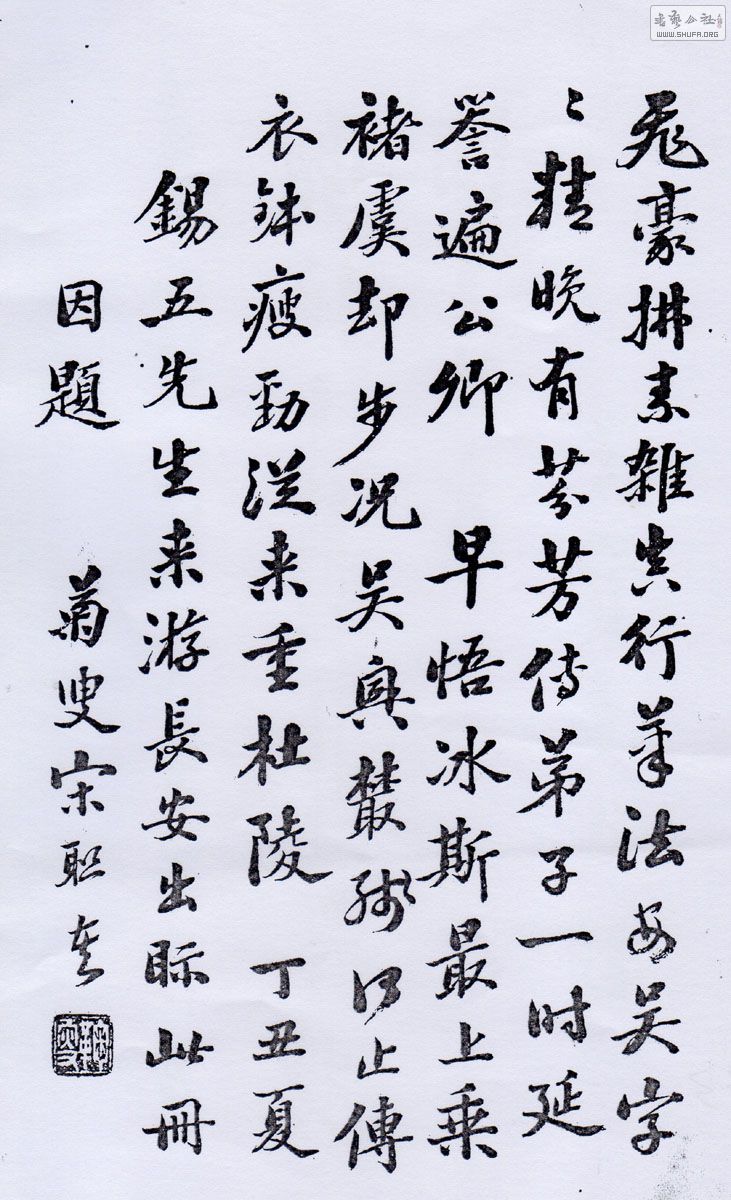 飛豪拂素雜真行筆法如吳字
字精晚有芬芳傳弟子一时延
譽遍公卿 早悟冰斯最上乘
褚虞却步况吴興叢殘何止傳
衣鉢瘦勁從来重杜陵 丁丑夏
錫五先生来游長安出眎此冊
因題 菊叟宋聯奎
書藝公社
WWW.SHUFA.ORG